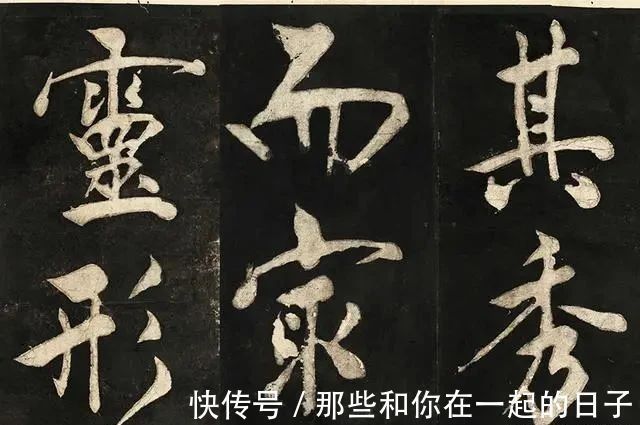 其秀
而㝡
靈形
快传号/那些和你在一起的日子